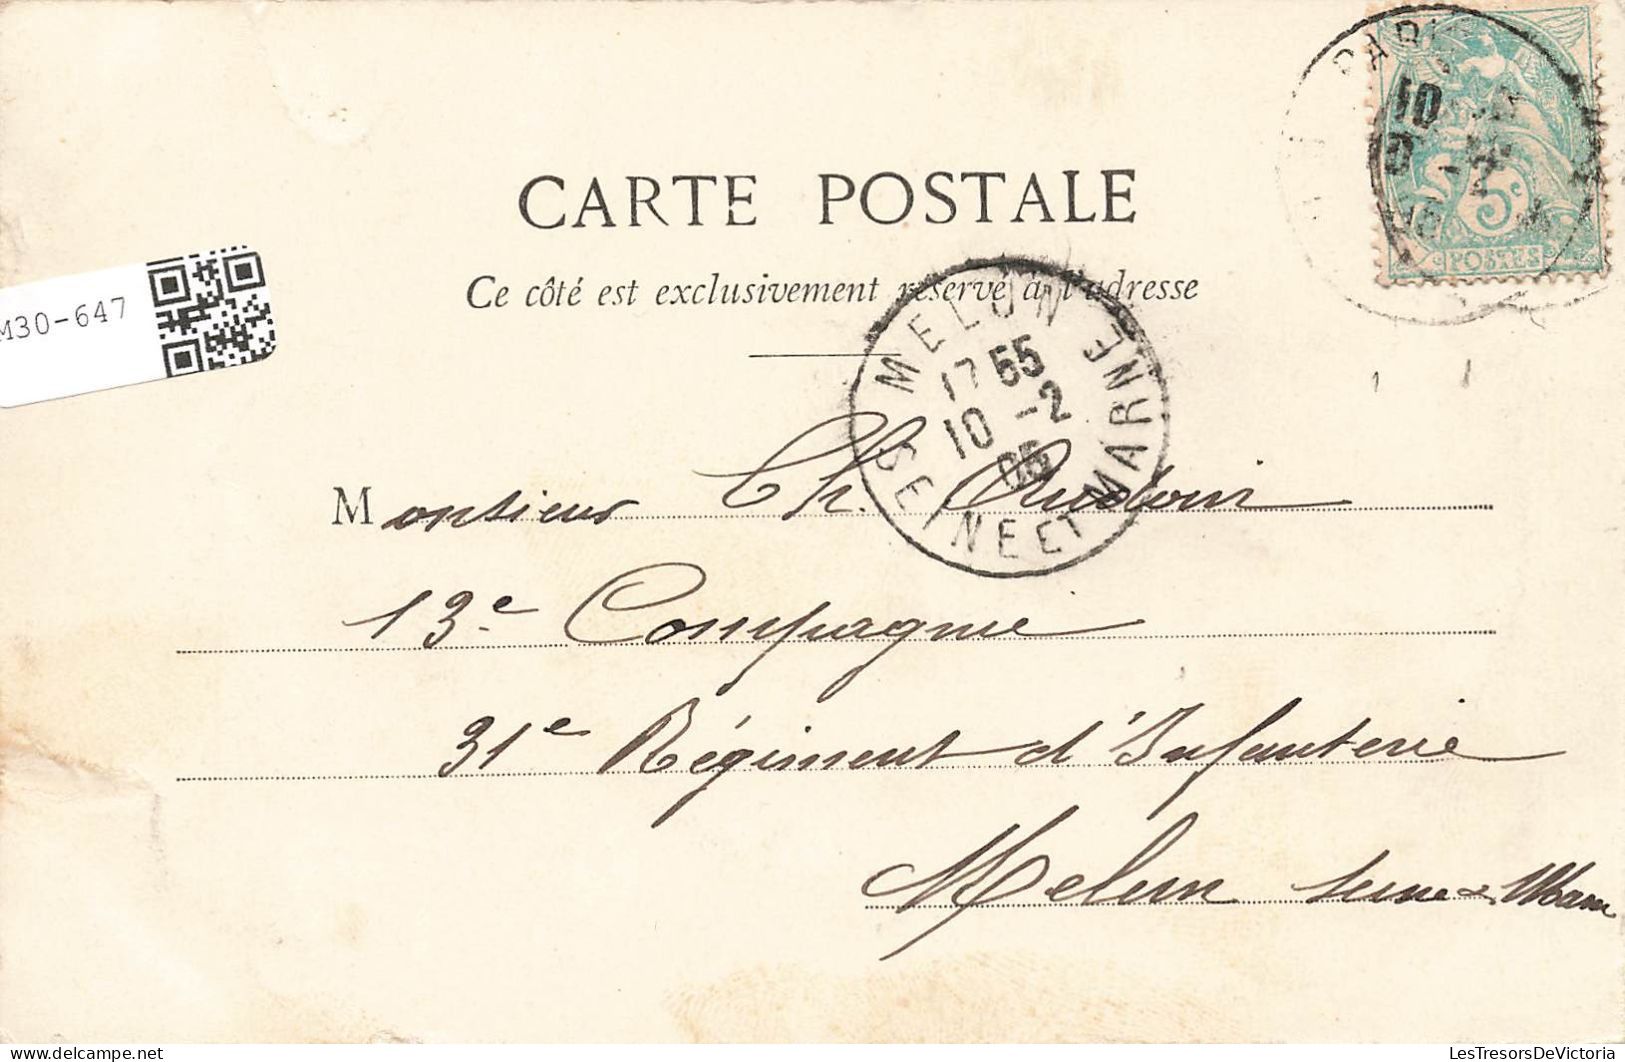 PARIS
10
POSTES
5
CARTE POSTALE
Ce côté est exclusivement réservé à l'adresse
M30-647
MELUN
17 55
10 -2
05
SEINE ET MARNE
Monsieur Ch. Audouin
13e Compagnie
31e Régiment d'Infanterie
Melun Seine & Marne
www.LesTresorsDeVictoria.com